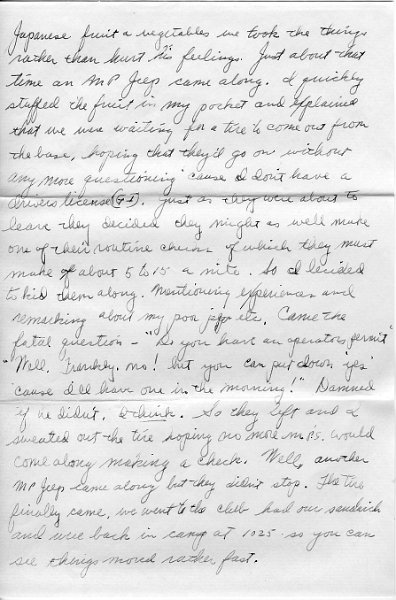 Japanese fruit & vegetables we took the things
rather than hurt his feelings. Just about that
time an MP Jeep came along. I quickly
stuffed the fruit in my pocket and explained
that we was waiting for a tire to come out from
the base, hoping that they'd go on without
any more questioning 'cause I don't have a
drivers license (GI). Just as they were about to
leave they decided they might as well make
one of their routine checks of which they must
make about 5 to 15 a nite. So I decided
to kid them along. Mentioning experiences and
remarking about my poor jeep etc. Came the
fatal question - "Do you have an operators permit"
"Well, frankly, no! but you can put down 'yes'
'cause I'll have one in the morning!" Damned
if he didn't, I think. So they left and I
sweated out the tire hoping no more M.P.s. would
come along making a check. Well, another
MP Jeep came along but they didn't stop. The tire
finally came, we went to the club had our sandwich
and were back in camp at 1025 so you can
see things moved rather fast.